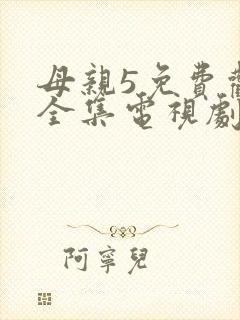 母親5免費
全集電視劇
阿寧兒